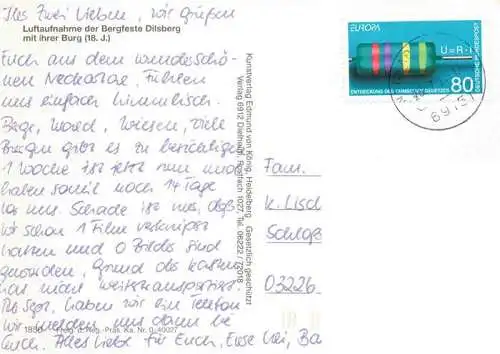 Ihr Zwei Lieben, wir grüßen
Luftaufnahme der Bergfeste Dilsberg
mit ihrer Burg (18. J.)
Euch aus dem wunderschö-
nen Neckartal, fühlen
uns einfach himmlisch.
Berge, Wald, Wiesen, viele
Burgen gibt es zu besichtigen
1 Woche ist jetzt um und
haben somit noch 14 Tage
vor uns. Schade ist nur, daß
wir schon 1 Film verknipst
hatten und 0 Bilder sind
geworden, Grund die Kamera
hat nicht weitertransportiert.
Sept. haben wir ein Telefon
wir melden uns dann bei
Euch. Alles Liebe für Euch, Eure
1830 Freig. d. Reg.-Präs. Ka. Nr. 0/40027
Kunstverlag Edmund von König, Heidelberg Gesetzlich geschützt
Verlag 6912 Dielheim, Postfach 1027, Tel. 06222/72018
EUROPA
U=R·I
80
ENTDECKUNG DES OHMSCHEN GESETZES
DEUTSCHE BUNDESPOST
Fam.
K. Lisch
Schloß
03226